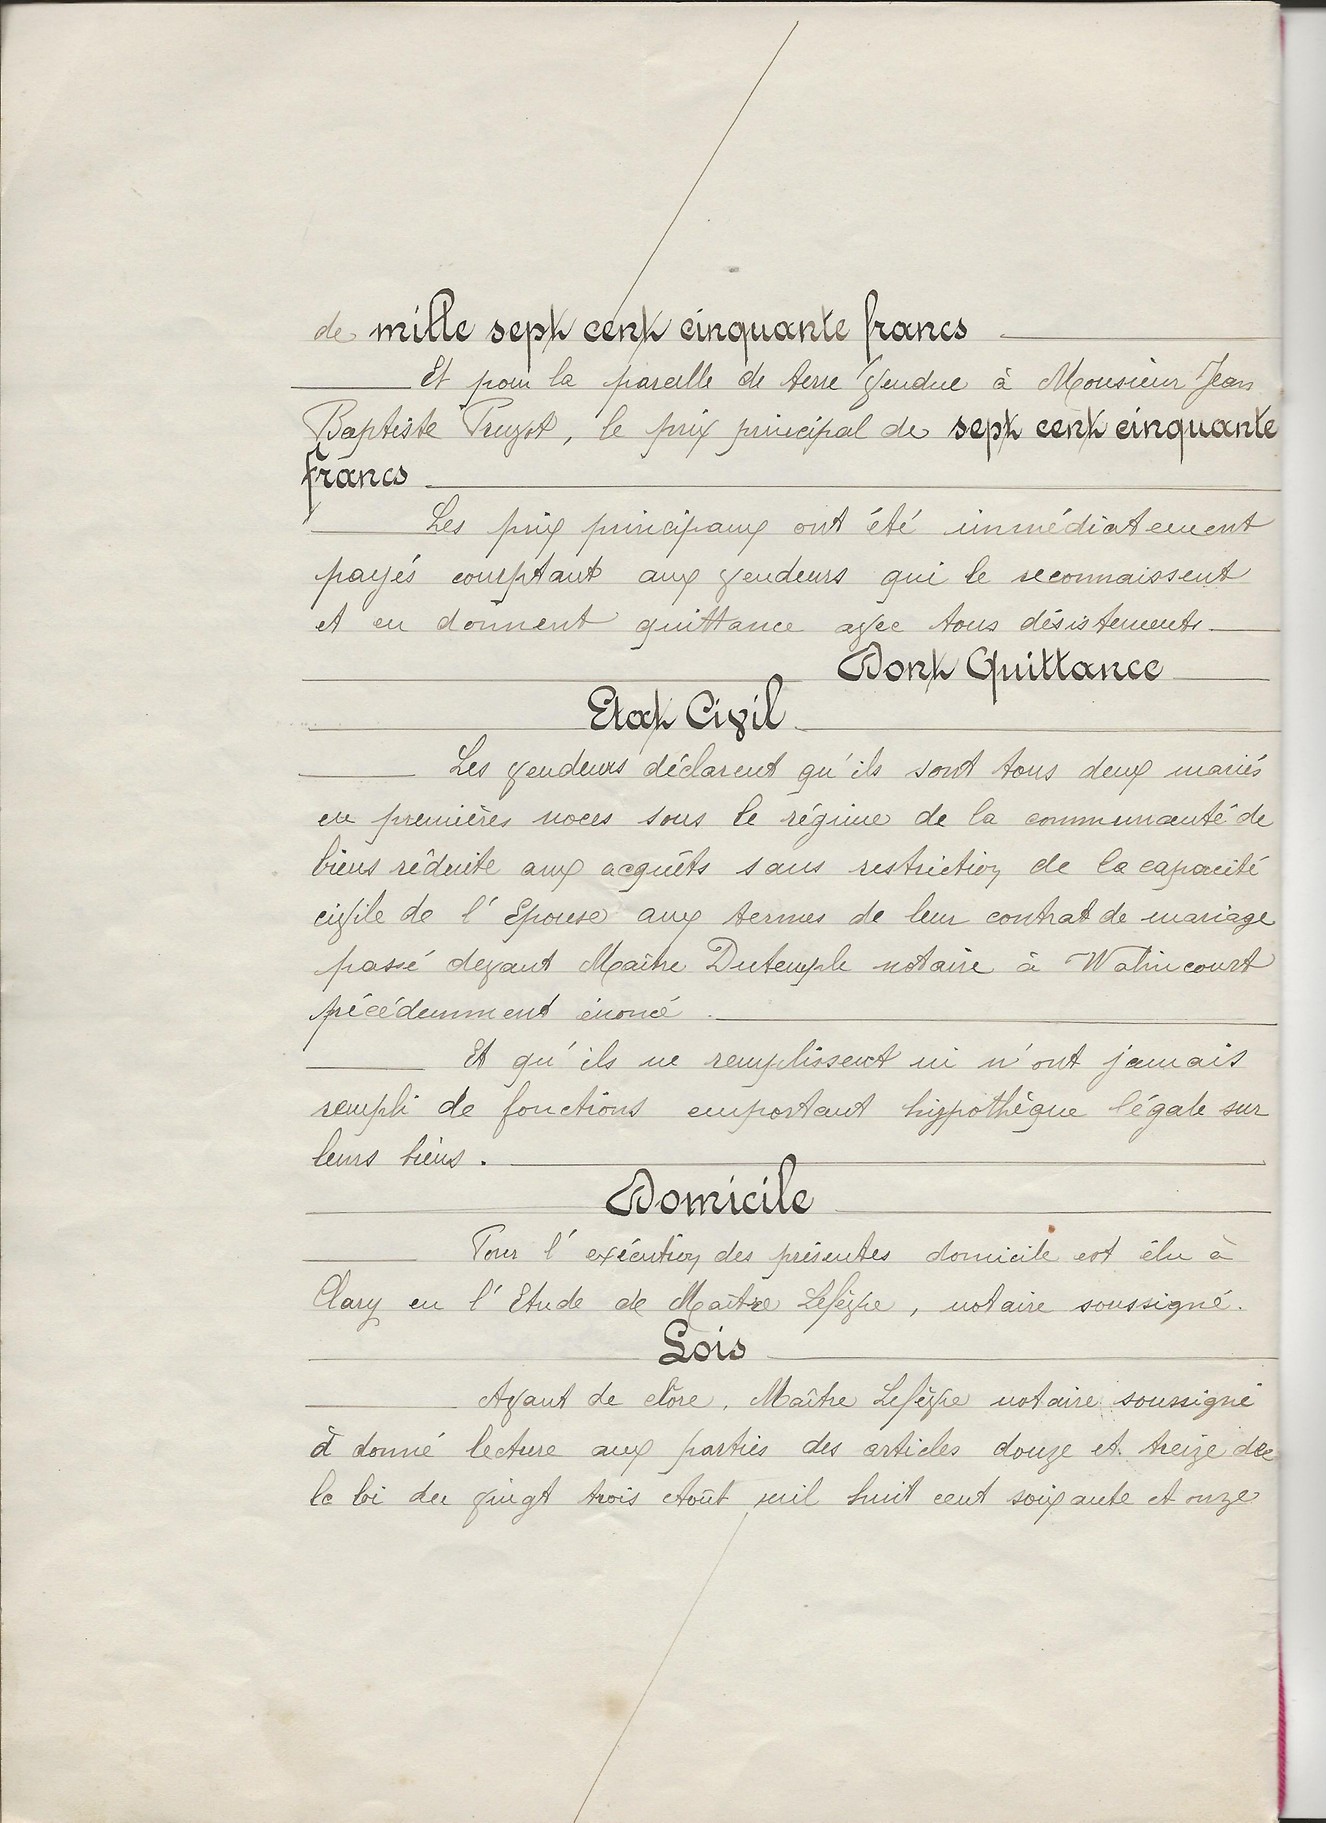 de mille sept cent cinquante francs
Et pour la parcelle de terre vendue à Monsieur Jean
Baptiste Pruzot, le prix principal de sept cent cinquante
francs
Les prix principaux ont été immédiatement
payés comptant aux vendeurs qui le reconnaissent
et en donnent quittance avec tous désistements
Dont Quittance
Etat Civil
Les vendeurs déclarent qu'ils sont tous deux mariés
en premières noces sous le régime de la communauté de
biens réduite aux acquêts sans restriction de la capacité
civile de l'Epouse aux termes de leur contrat de mariage
passé devant Maître Dutemple notaire à Walincourt
précédemment énoncé.
Et qu'ils ne remplissent ni n'ont jamais
rempli de fonctions emportant hypothèque légale sur
leurs biens.
Domicile
Pour l'exécution des présentes domicile est élu à
Clary en l'Etude de Maître Lefèvre, notaire soussigné.
Lois
Avant de clore, Maître Lefèvre notaire soussigné
à donné lecture aux parties des articles douze et treize de
la loi du vingt trois Août mil huit cent soixante et onze